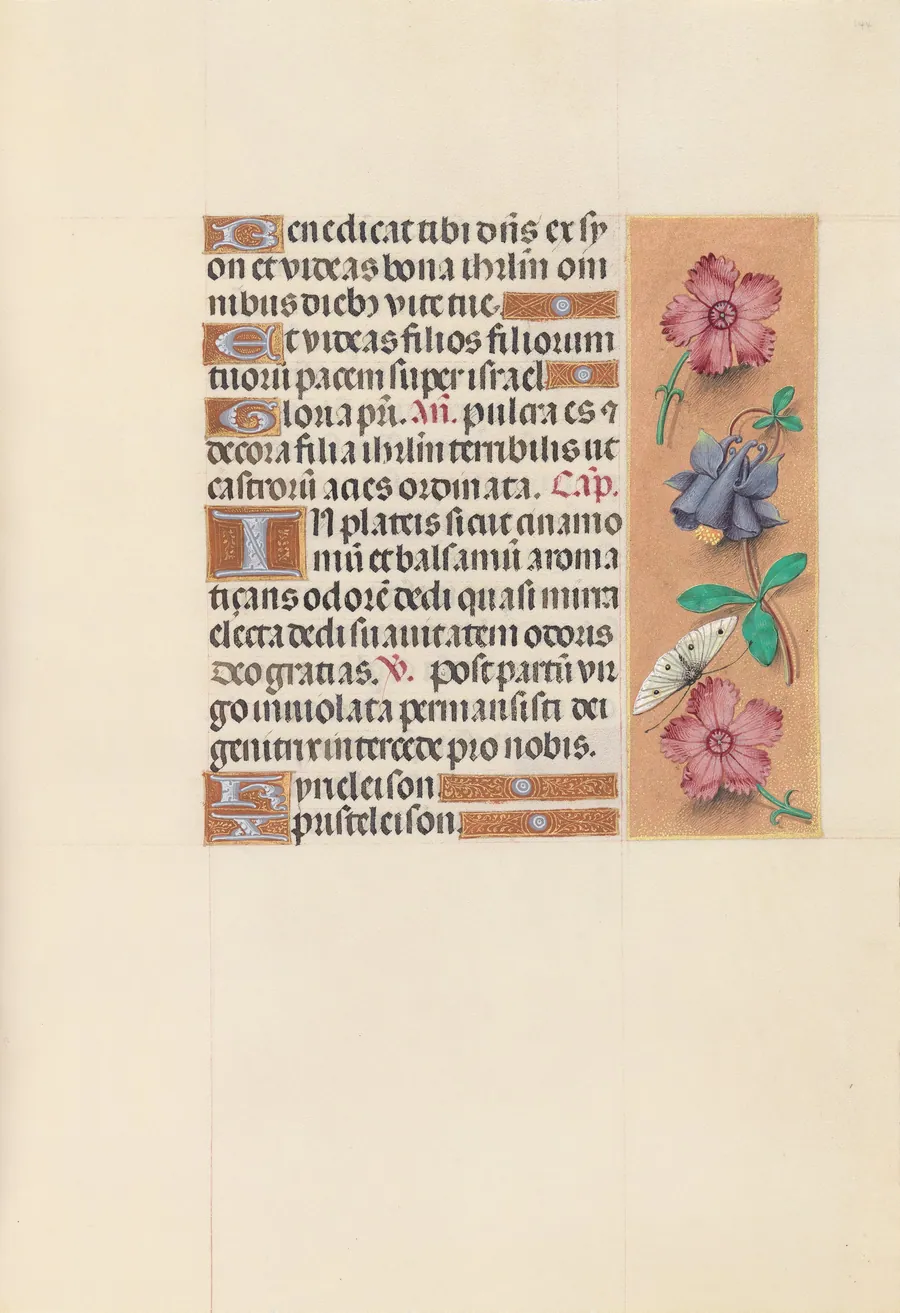 Benedicat tibi dn̄s ex sy
on et videas bona ihrl̄m om
nibus dieb9 vite tue.
Et videas filios filiorum
tuorū pacem super israel.
Gloria pr̄i. An̄. pulcra es ⁊
decora filia ihrl̄m terribilis ut
castrorū acies ordinata. Cap̄.
IN plateis sicut cinamo
mū et balsamū aroma
tiçans odorē dedi quasi mirra
electa dedi suauitatem odoris
Deo gratias. V̄. post partū vir
go inuiolata permansisti dei
genitrix intercede pro nobis.
Kyrieleison.
Xpristeleison.